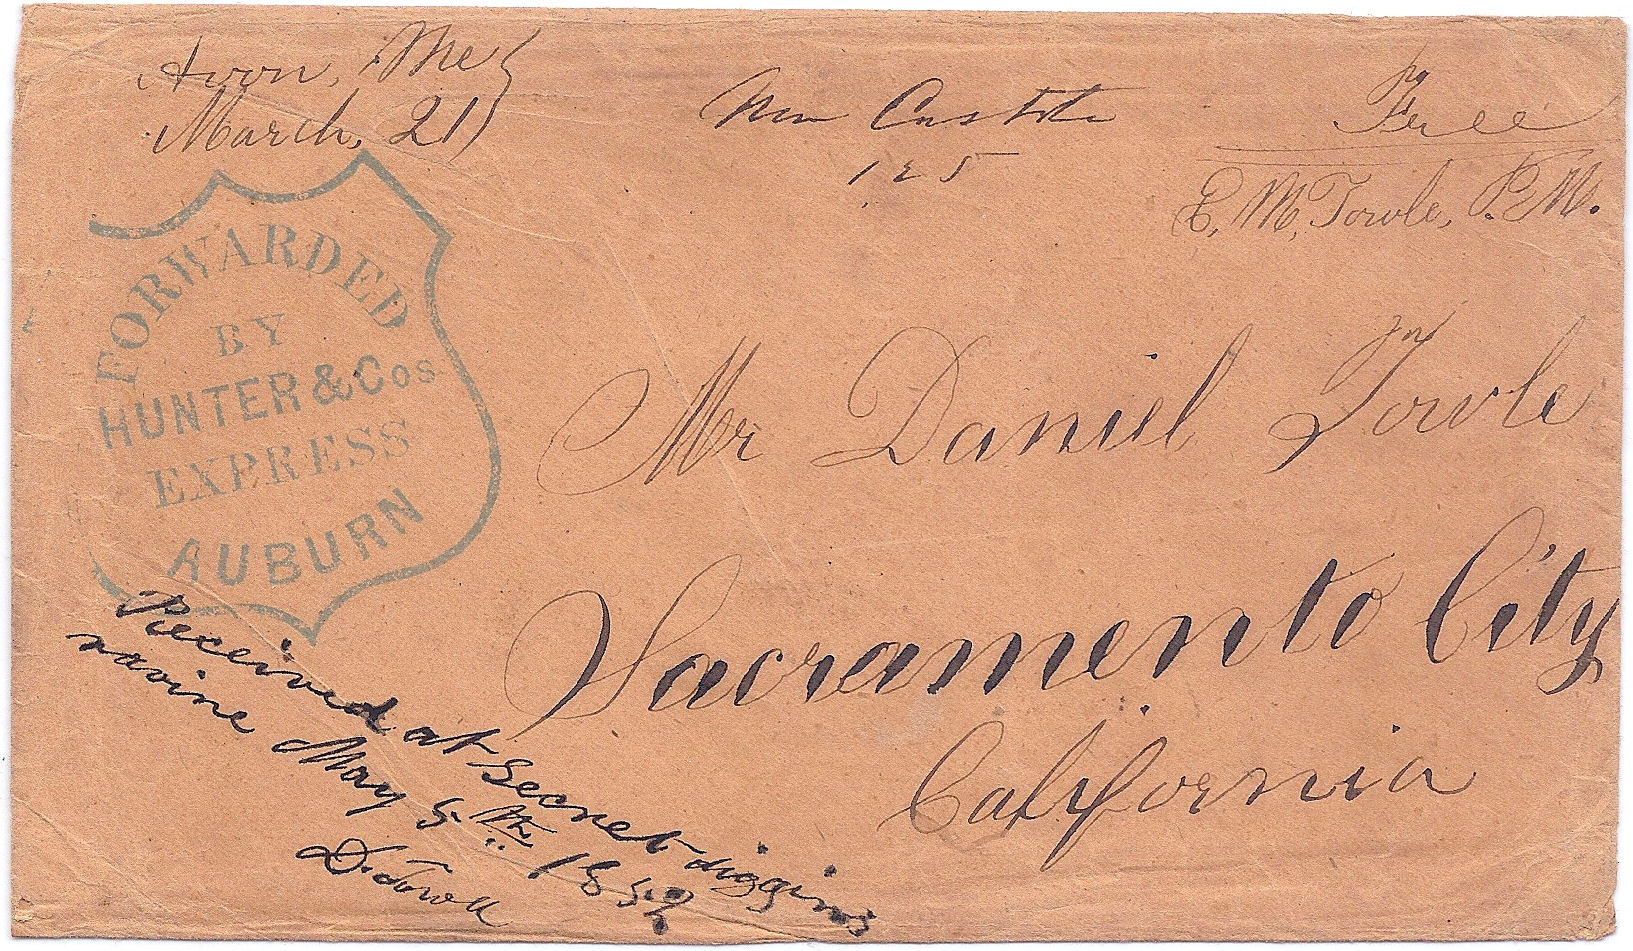 Avon, Me
March, 21
125
Free
E. M. Towle, P. M.
FORWARDED
BY
HUNTER & Cos
EXPRESS
AUBURN
Mr Daniel Towle
Sacramento City
California
Received at Secret diggins
ravine May 5th 1852
D. Towle